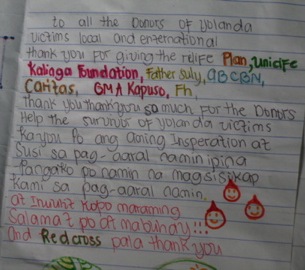 to all the Donors of yolanda
victims local and enternational
thank you for giving the relife Plan, unicife
Kalinga Foundation, Father suly, ABCBN,
Caritas, GMA Kapuso, Fh,
thank you thankyou so much For the Donors
Help the survivor of yolanda victims
kanyou Po ang aming Insperation at
Susi sa pag-aaral namin ipina
Pangako po namin na magsisikap
Kami sa pag-aaral namin.
at Inuulit Kopo maraming
Salamat po at mabuhay!!!
and Redcross pala thank you